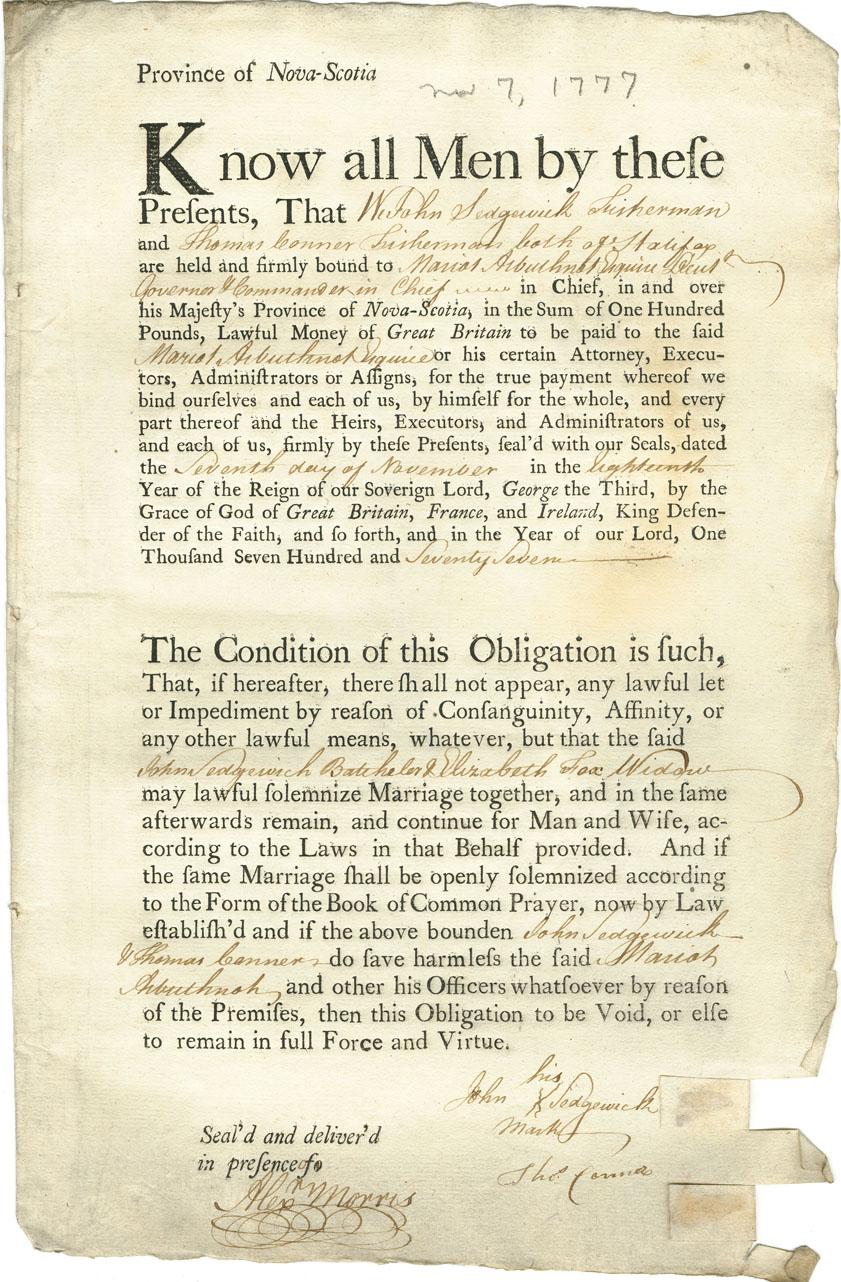 Province of Nova-Scotia
Nov 7, 1777
Know all Men by theſe
Preſents, That We John Sedgewick Fisherman
and Thomas Conner Fisherman both of Halifax
are held and firmly bound to Mariot Arbuthnot Esquire Lieut
Governor & Commander in Chief in Chief, in and over
his Majeſty's Province of Nova-Scotia, in the Sum of One Hundred
Pounds, Lawful Money of Great Britain to be paid to the ſaid
Mariot Arbuthnot Esquire or his certain Attorney, Execu-
tors, Adminiſtrators or Aſſigns, for the true payment whereof we
bind ourſelves and each of us, by himſelf for the whole, and every
part thereof and the Heirs, Executors, and Adminiſtrators of us,
and each of us, firmly by theſe Preſents, ſeal'd with our Seals, dated
the Seventh day of November in the Eighteenth
Year of the Reign of our Soverign Lord, George the Third, by the
Grace of God of Great Britain, France, and Ireland, King Defen-
der of the Faith, and ſo forth, and in the Year of our Lord, One
Thouſand Seven Hundred and Seventy Seven
The Condition of this Obligation is ſuch,
That, if hereafter, there ſhall not appear, any lawful let
or Impediment by reaſon of Conſanguinity, Affinity, or
any other lawful means, whatever, but that the ſaid
John Sedgewick Batchelor & Elizabeth Fox Widow
may lawful ſolemnize Marriage together, and in the ſame
afterwards remain, and continue for Man and Wife, ac-
cording to the Laws in that Behalf provided. And if
the ſame Marriage ſhall be openly ſolemnized according
to the Form of the Book of Common Prayer, now by Law
eſtabliſh'd and if the above bounden John Sedgewick
& Thomas Conner do ſave harmleſs the ſaid Mariot
Arbuthnot, and other his Officers whatſoever by reaſon
of the Premiſes, then this Obligation to be Void, or elſe
to remain in full Force and Virtue.
his
John X Sedgewick
Mark
Seal'd and deliver'd
in preſence of
Thos. Conner
Alexr Morris